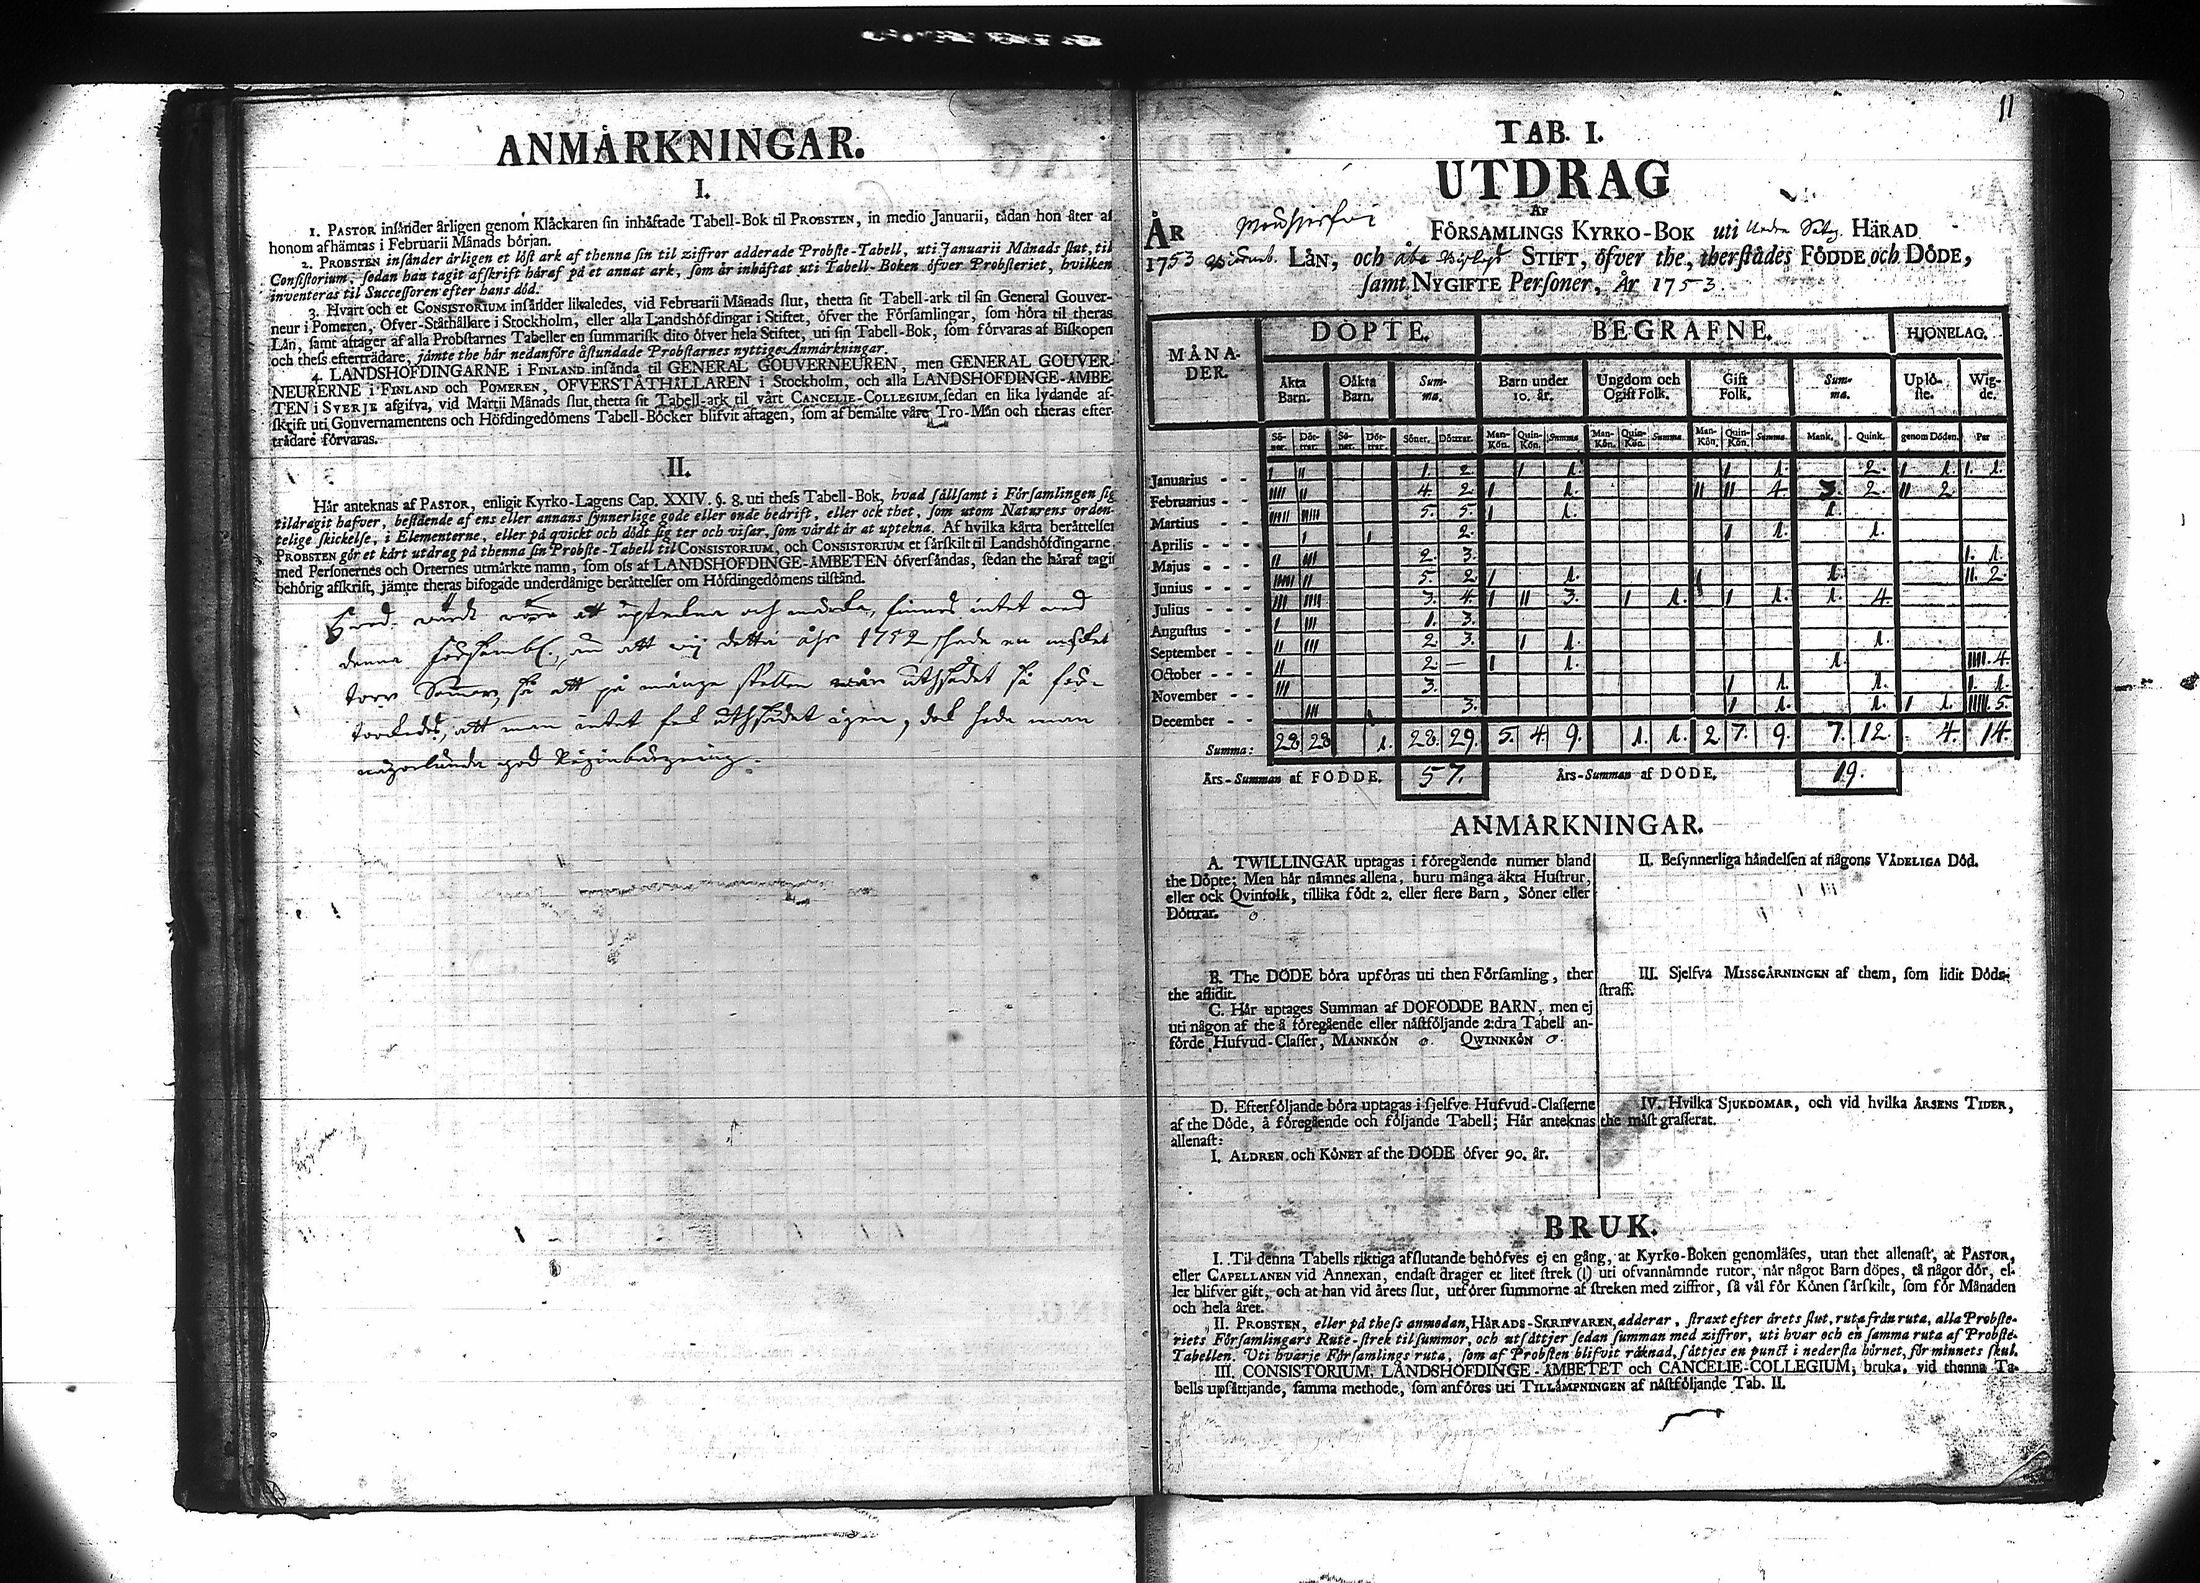 ANMÅRKNINGAR.
I.
1. PASTOR insånder årligen genom Klåckaren sin inhåftade Tabell-Bok til PROBSTEN, in medio Januarii, tådan hon åter af
honom afhämtas i Februarii Månads början.
2. PROBSTEN insånder årligen et löst ark af thenna sin til ziffror adderade Probste-Tabell, uti Januarii Månads slut, til
Consistorium; sedan han tagit afskrift håraf på et annat ark, som år inhåftat uti Tabell-Boken öfver Probsteriet, hvilken
inventeras til Successoren efter hans död.
3. Hvart och et CONSISTORIUM insånder likaledes, vid Februarii Månads slut, thetta sit Tabell-ark til sin General Gouver-
neur i Pomeren, Öfver-Ståthållare i Stockholm, eller alla Landshöfdingar i Stiftet, öfver the Församlingar, som höra til theras
Lån, samt aftager af alla Probstarnes Tabeller en summarisk dito öfver hela Stiftet, uti sin Tabell-Bok, som förvaras af Biskopen
och thess eftertrådare, jämte the hår nedanföre åstundade Probstarnes nyttige Anmårkningar.
4. LANDSHÖFDINGARNE i FINLAND insånda til GENERAL GOUVERNEUREN, men GENERAL GOUVER-
NEURERNE i FINLAND och POMEREN, ÖFVERSTÅTHÅLLAREN i Stockholm, och alla LANDSHÖFDINGE-ÅMBE-
TEN i SVERJE afgifva, vid Martii Månads slut, thetta sit Tabell-ark til vårt CANCELIE-COLLEGIUM, sedan en lika lydande af-
skrift uti Gouvernamentens och Höfdingedömens Tabell-Böcker blifvit aftagen, som af bemålte våre Tro-Mån och theras efter-
trådare förvaras.
II.
Hår anteknas af PASTOR, enligit Kyrko-Lagens Cap. XXIV. §. 8. uti thess Tabell-Bok, hvad sållsamt i Församlingen sig
tildragit hafver, bestående af ens eller annans synnerlige gode eller onde bedrift, eller ock thet, som utom Naturens orden-
telige skickelse, i Elementerne, eller på qvickt och dödt sig ter och visar, som vårdt år at uptekna. Af hvilka kårta beråttelser
PROBSTEN gör et kårt utdrag på thenna sin Probste-Tabell til CONSISTORIUM, och CONSISTORIUM et sårskilt til Landshöfdingarne,
med Personernes och Orternes utmårkte namn, som oss af LANDSHÖFDINGE-ÅMBETEN öfversåndas, sedan the håraf tagit
behörig afskrift, jämte theras bifogade underdånige beråttelser om Höfdingedömens tilstånd.
att uptekna och märka, finnes intet uti
denna att wij detta åhr 1752 hade en mycket
torr Somar, så att på månge stellen utsädet så
att man intet fek uthsädet igen, dok hade man
någorlunda god
11
TAB. I.
UTDRAG
AF
ÅR FÖRSAMLINGS KYRKO-BOK uti Nedre HÄRAD
1753 LÅN, och åbo STIFT, öfver the, therstådes FÖDDE och DÖDE,
samt NYGIFTE Personer, År 1753.
MÅNA-DER. DÖPTE. BEGRAFNE. HJONELAG.
Åkta Barn. Oåkta Barn. Sum-ma. Barn under 10. år. Ungdom och Ogift Folk. Gift Folk. Sum-ma. Uplö-ste. Wig-de.
Sö-ner. Döt-trar. Sö-ner. Döt-trar. Söner. Döttrar. Man-Kön. Quin-Kön. Summa Man-Kön. Quin-Kön. Summa Man-Kön. Quin-Kön. Summa Mank. Quink. genom Döden. Par
Januarius - - I II 1. 2. I 1. I 1. 2. I 1. I. 1.
Februarius - - IIII II 4. 2. I 1. II II 4. 3. 2. II 2.
Martius - - IIIII IIIII 5. 5. I 1. 1.
Aprilis - - I I 2. I 1. 1.
Majus - - II III 2. 3. I. 1.
Junius - - IIIII II 5. 2. I 1. I 1. II. 2.
Julius - - III IIII 3. 4. I II 3. I 1. I 1. 1. 4.
Augustus - - I III 1. 3.
September - - II III 2. 3. I 1. 1.
October - - II 2. — I 1. 1. IIII. 4.
November - - III 3. I 1. 1. I. 1.
December - - III 3. I 1. 1. I 1. IIIII. 5.
Summa: 28 28 1. 28. 29. 5. 4. 9. 1. 1. 2 7. 9. 7. 12. 4. 14.
Års-Summan af FÖDDE. 57. Års-Summan af DÖDE. 19.
ANMÅRKNINGAR.
A. TWILLINGAR uptagas i föregående numer bland
the Döpte; Men hår nåmnes allena, huru många åkta Hustrur,
eller ock Qvinfolk, tillika födt 2. eller flere Barn, Söner eller
Döttrar. 0
B. The DÖDE böra upföras uti then Församling, ther
the aflidit.
C. Hår uptages Summan af DÖFÖDDE BARN, men ej
uti någon af the å föregående eller nåstföljande 2:dra Tabell an-
förde Hufvud-Classer, MANNKÖN 0. QWINNKÖN 0.
D. Efterföljande böra uptagas i sjelfve Hufvud-Classerne
af the Döde, å föregående och följande Tabell; Hår anteknas
allenast:
I. ÅLDREN och KÖNET af the DÖDE öfver 90. år.
II. Besynnerliga håndelsen af någons VÅDELIGA Död.
III. Sjelfva MISSGÅRNINGEN af them, som lidit Döds-
straff.
IV. Hvilka SJUKDOMAR, och vid hvilka ÅRSENS TIDER,
the måst grasserat.
BRUK.
I. Til denna Tabells riktiga afslutande behöfves ej en gång, at Kyrko-Boken genomläses, utan thet allenast, at PASTOR,
eller CAPELLANEN vid Annexan, endast drager et litet strek (|) uti ofvannåmnde rutor, når något Barn döpes, tå någor dör, el-
ler blifver gift, och at han vid årets slut, utförer summorne af streken med ziffror, så vål för Könen sårskilt, som för Månaden
och hela året.
II. PROBSTEN, eller på thess anmodan, HÄRADS-SKRIFVAREN, adderar, straxt efter årets slut, ruta från ruta, alla Probste-
riets Församlingars Rute-strek til summor, och utsåttjer sedan summan med ziffror, uti hvar och en samma ruta af Probste-
Tabellen. Uti hvarje Församlings ruta, som af Probsten blifvit råknad, såttjes en punct i nedersta hörnet, för minnets skul.
III. CONSISTORIUM, LANDSHÖFDINGE-ÅMBETET och CANCELIE-COLLEGIUM, bruka, vid thenna Ta-
bells upsåttjande, samma methode, som anföres uti TILLÅMPNINGEN af nåstföljande Tab. II.